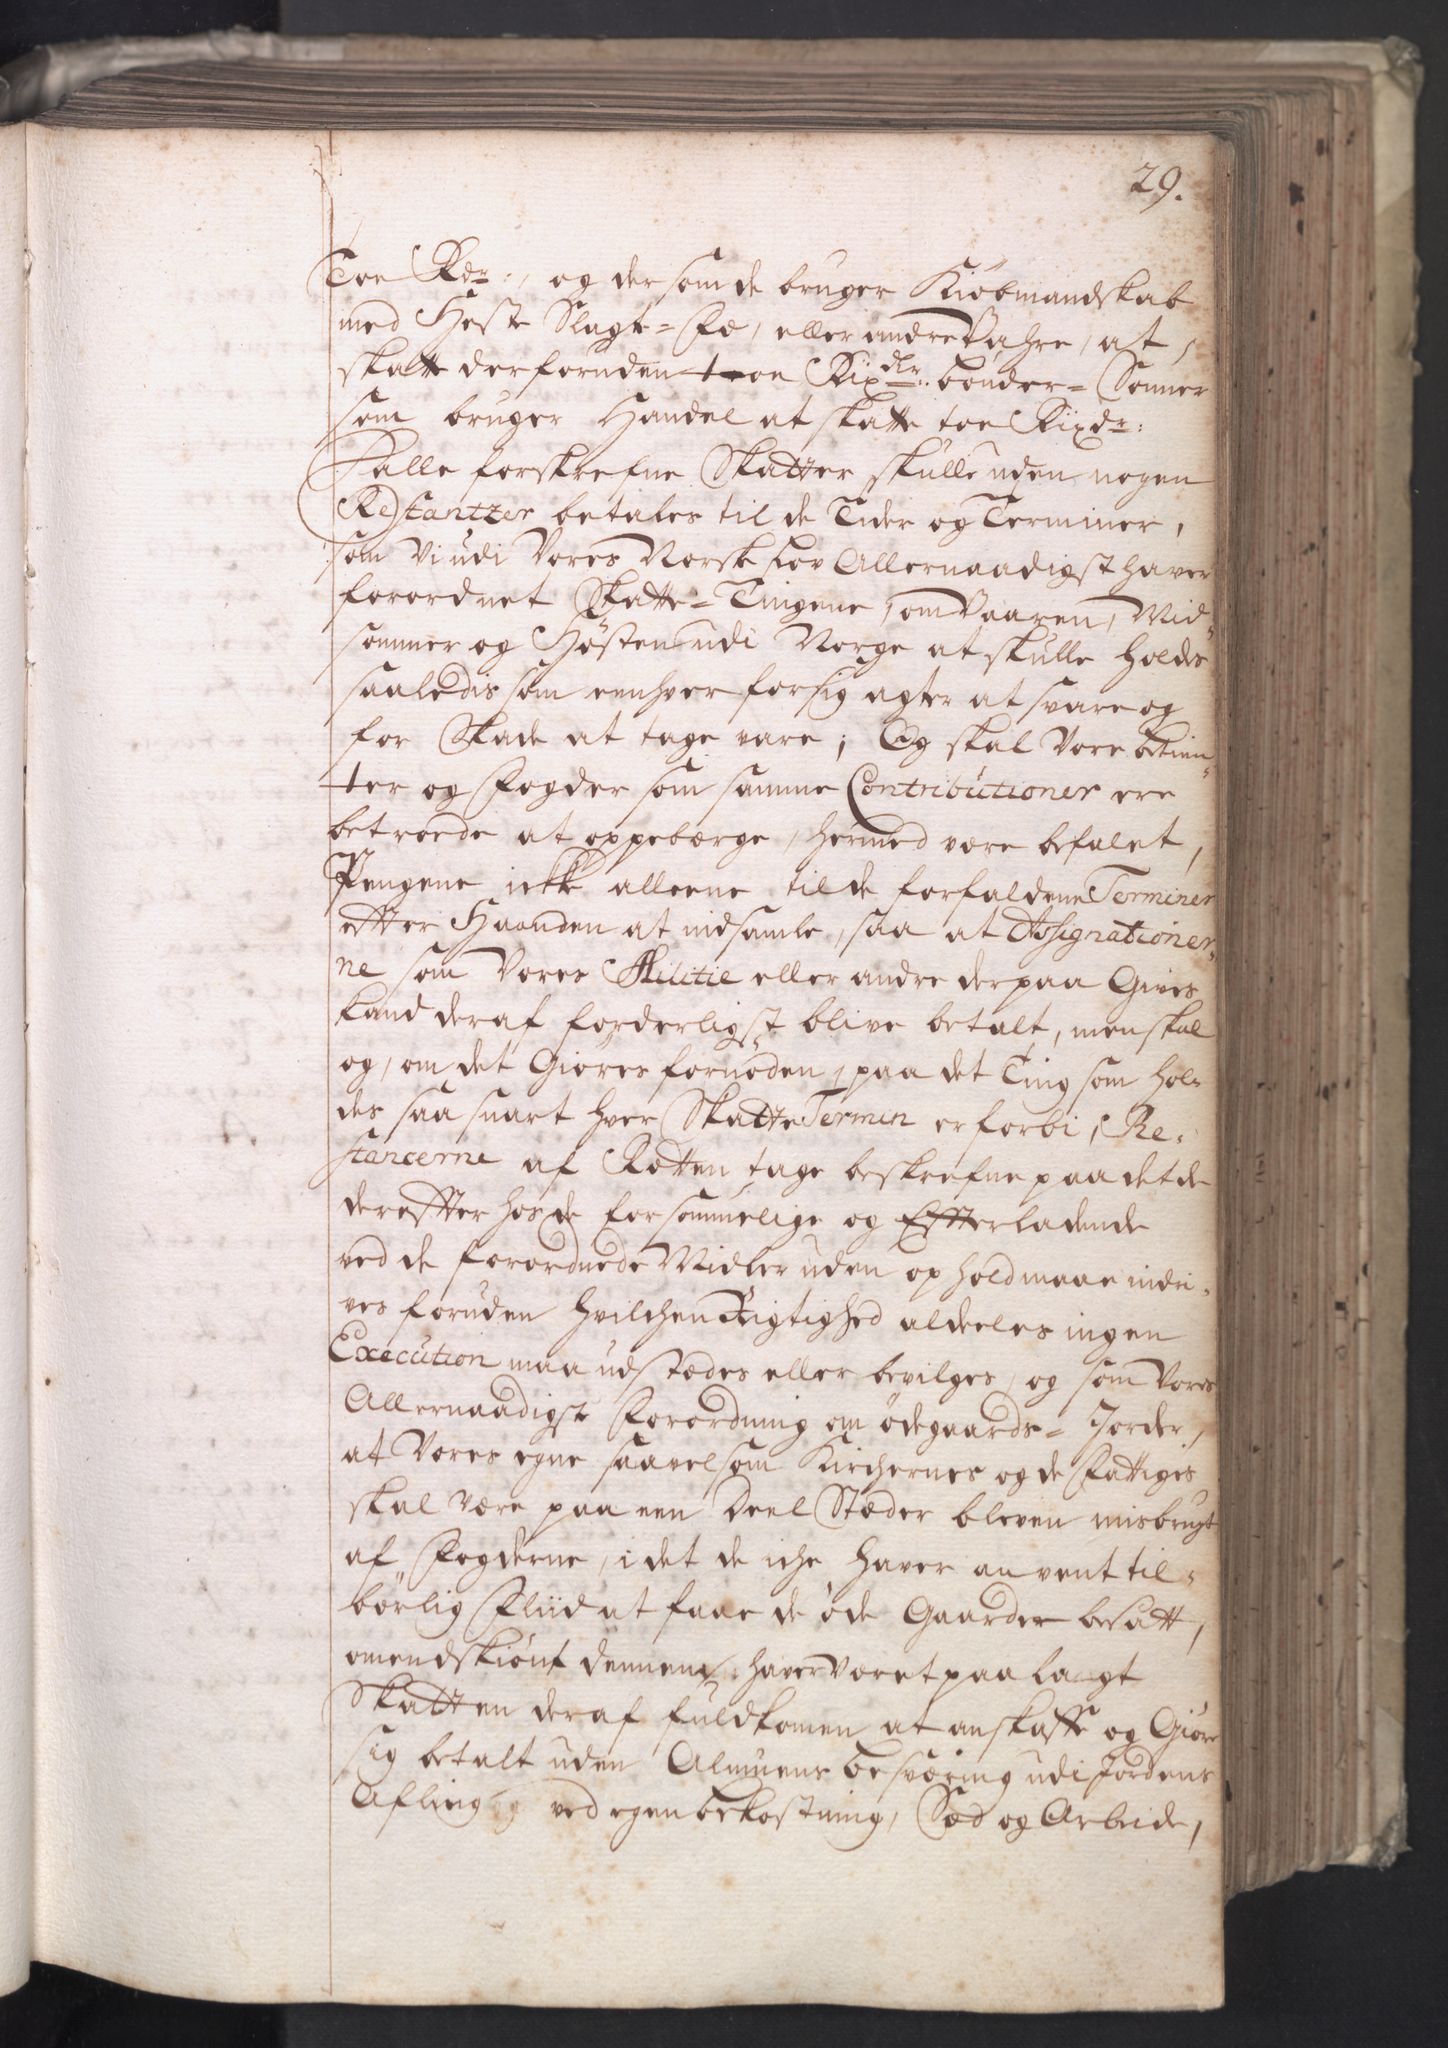 29.
Toe Rdr:, og dersom de bruger Kiöbmandskab
med Heste Slagte= Fæ, eller andre Vahre, at,
skatte derforuden toe Rixdlr: bönder= Sönner
som bruger Handel at skatte toe Rixdr:
alle forskrefne Skatter skulle uden nogen
Restantzer betales til de Tider og Terminer,
som Vi udi Vores Norske Lov Allernaadigst haver
forordnet Skatte= Tingene, om Vaaren, Mid=
sommer og Hösten udi Norge at skulle holdes
saaledis som eenhver for sig agter at svare og
for Skade at tage vare; Og skal Vore betien=
ter og Fogder som samme Contributioner ere
betroede at oppebærge, hermed være befalet,
Pengene icke alleene til de forfaldene Terminer
effter Haanden at indsamle, saa at Assignationer=
ne som Vores Militie eller andre derpaa Gives
kand deraf forderligst blive betalt, men skal
og, om det Giöres fornöden, paa det Ting som hol=
des saa snart hver Skatte Termin er forbi, Re=
stancerne af Retten tage beskrefne paa det de
dereffter hos de forsömmelige og Effterladende
ved de forordnede Midler uden ophold maae indri=
ves foruden hvilchen Rigtighed aldeeles ingen
Execution maa udstædes eller bevilges, og som Vores
Allernaadigst Forordning om ödegaards= Jorder,
at Vores egne saavelsom Kirchernes og de Fattiges
skal være paa een Deel Stæder bleven misbrugt
af Fogderne, i det de iche haver anvent til=
börlig Fliid at faae de öde Gaarder besatt,
omendskiönt dennem haver været paalagt
Skatten deraf fuldkomen at anskaffe og Giöre
sig betalt uden Almuens besværing udi Jordens
Afling ved egen bekostning, Sæd og Arbeide,